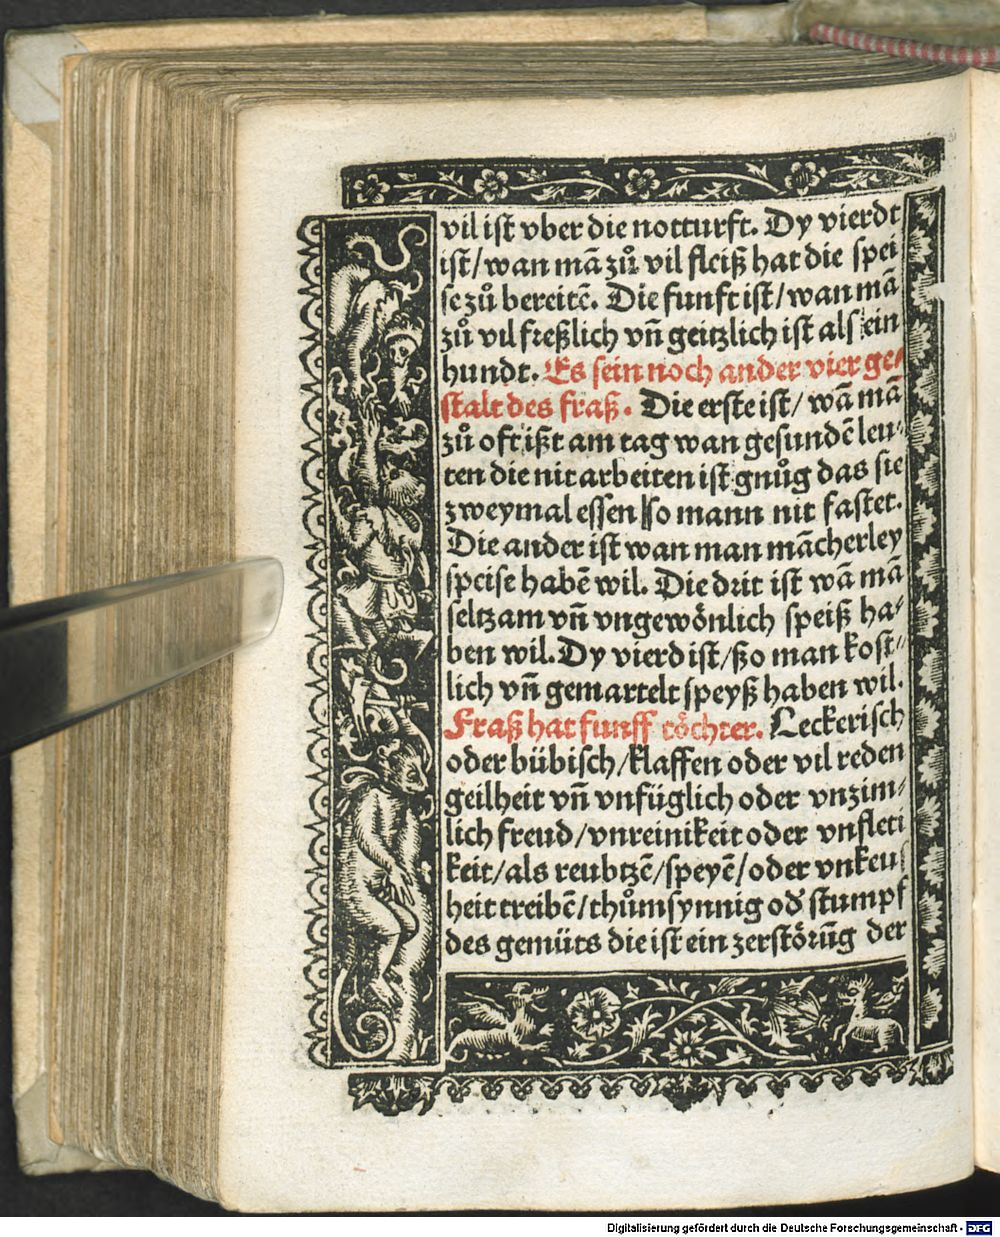 vil ist vber die notturft. Dy vierdt
ist/ wan mā zů vil fleiß hat die spei
se zů bereitē. Die funft ist/ wan mā
zů vil freßlich vn̄ geitzlich ist als ein
hundt. Es sein noch ander vier ge⸗
stalt des fraß. Die erste ist/ wā mā
zů oft ißt am tag wan gesundē leu⸗
ten die nit arbeiten ist gnůg das sie
zweymal essen so mann nit fastet.
Die ander ist wan man mācherley
speise habē wil. Die drit ist wā mā
seltzam vn̄ vngewönlich speiß ha⸗
ben wil. Dy vierd ist/ ßo man kost⸗/
lich vn̄ gemartelt speyß haben wil.
Fraß hat funff töchter. Leckerisch
oder bübisch/ klaffen oder vil reden
geilheit vn̄ vnfüglich oder vnzim⸗
lich freud/ vnreinikeit oder vnfleti
keit/ als reubtzē/ speyē/ oder vnkeus
heit treibē/ thůmsynnig od̕ stumpf
des gemüts die ist ein zerstörūg der
Digitalisierung gefördert durch die Deutsche Forschungsgemeinschaft - DFG